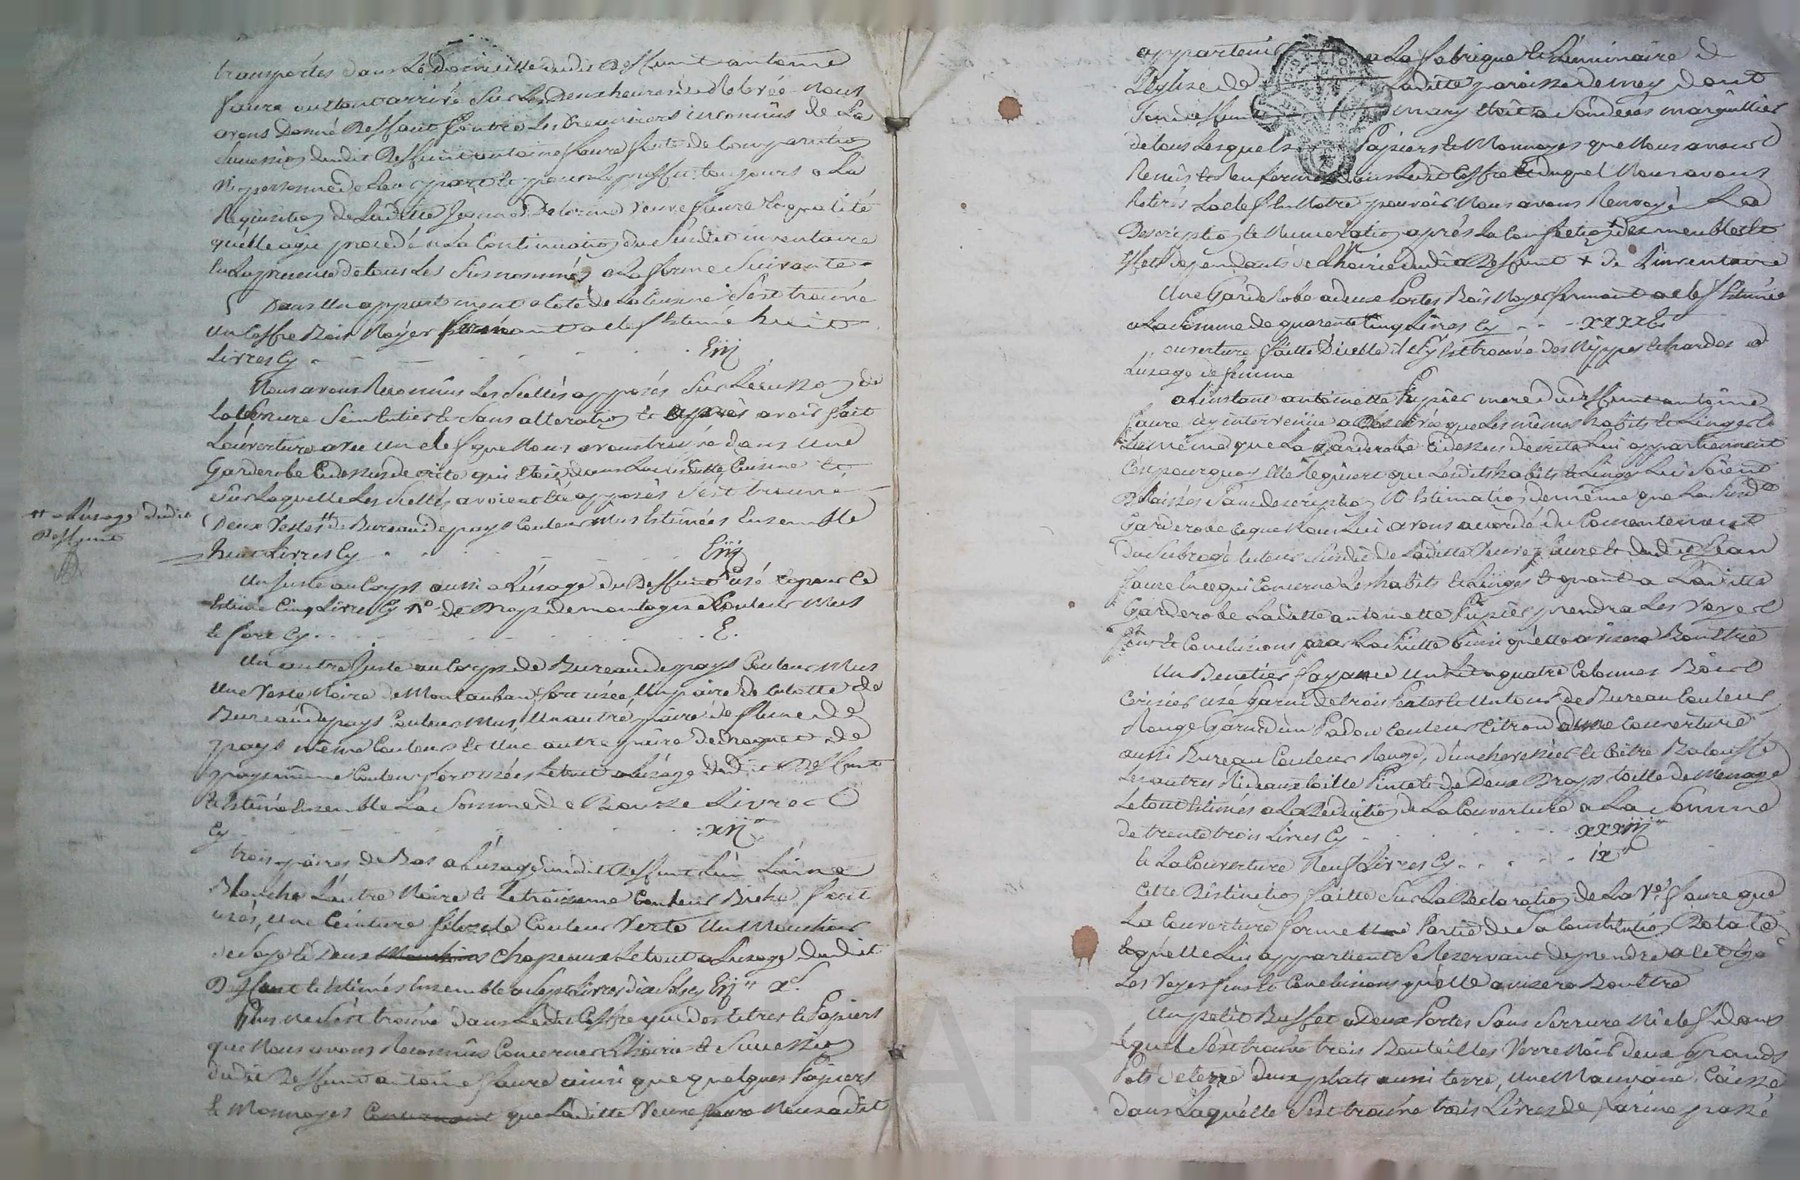 transportes dans Le domicille dudit Deffunt antoine
faure ou étant arrivé Sur Les Deux heures de Relevée Nous
avons Donné Deffaut Contre Les Creanciers inconnûs de La
Succession dudit Deffunt antoine faure faute de Comparution
Ny personne de Leur part et pour Le proffit toujours a La
Requisition de Laditte Jeanne Delorme veuve faure En qualité
qu'elle agit procedé a La Continuation du Susdit inventaire
En La presence de tous Les Susnommés a La forme Suivante
Dans Un appartement a Coté de La Cuisine S'est trouvé
Un Coffre Bois Noyer fermant a clef Estimé huit
Livres Cy
Nous avons Reconnûs Les Scellés apposés Sur L'écusson de
La Serrure Sein Entier et Sans alteration Et après avoir fait
L'ouverture avec Une clef que Nous avons trouvé dans Une
Garderobe Cy dessus décrite qui Etoit dans Laditte Cuisine Et
Sur Laquelle Les Scellés avoient été apposés S'est trouvé
++ a L'usage dudit
Deffunt
Deux Vestes ++ de Bureau de pays Couleur Mus Estimées Ensemble
huit Livres Cy
Un Juste au Corps aussi a L'usage du Deffunt Usé
Estimé Cinq Livres Cy de Drap de montagne Couleur Mus
Cy
Un autre Juste au Corps de Bureau de pays Couleur Mus
Une Veste Noire de Montauban fort usée, Un paire de Culotte de
Bureau de pays Couleur Mus, Un autre paire de
pays même Couleur Et Une autre paire de de
pays même Couleur fort usées Le tout a L'usage dudit Deffunt
Et Estimé Ensemble La Somme de Douze Livres
Cy xij
trois paires de Bas a L'usage dudit Deffunt L'un Laine
Blanche L'autre Noire Et Le troisieme Couleur Biche fort
usés, Une Ceinture filozele Couleur Verte Un Mouchoir
de Soye Et Deux Mouchoirs Chapeaux Le tout a L'usage dudit
Deffunt Et Estimés Ensemble a Sept Livres dix Sols Cy
Plus ne S'est trouvé dans Ledit Coffre que des titres Et Papiers
que Nous avons Reconnûs Concerner L'hoirie Et Succession
dudit Deffunt antoine faure ainsi que quelques Papiers
Et Monnoyes Concernant que Laditte Veuve faure Nous a dit
appartenir a La fabrique Et Luminaire de
L'Eglise de Laditte paroisse de dont
mary Etoit a Son décés marguillier
de tous Lesquels Papiers Et Monnoyes que Nous avons
Remis Et Renfermés dans Ledit Coffre Et duquel Nous avons
Retirés La clef En Notre pouvoir Nous avons Renvoyé La
Description Et Numeration après La Confection + des meubles Et
Effets dependants de L'hoirie dudit Deffunt + de L'inventaire
Une Garderobe a deux Portes Bois Noyer fermant a clef Estimée
a La Somme de quarente Cinq Livres Cy
ouverture faitte D'icelle il S'y Est trouvé des Nippes Et hardes a
L'usage de femme
a L'instant antoinette Pupier mere dudit Deffunt antoine
faure ayt intervenüe a déclaré que Les mêmes habits Et Linges Et
de même que La Garderobe Cy dessus décrite Lui appartiennent
C'est pourquoy Elle Requiert que Lesdits habits Et Linges Lui Soient
délaissés Sans description Ni Estimation de même que La Susditte
Garderobe Ce que Nous Lui avons accordé du Consentement
du Subrogé tuteur Susdit de Laditte Veuve faure Et dudit Jean
faure En ce qui Concerne Les habits Et Linges Et quant a Laditte
Garderobe Laditte antoinette Pupier prendra Les Voyes
fins Et Conclusions par La Suitte Ainsi qu'elle avisera Bon être
Un Benetier fayance Un Lit en quatre Colonnes Bois
Cerisier usé Garni de trois Pantes Et Un tour de Bureau Couleur
Rouge Garni d'un Padou Couleur Citron d'une Couverture
aussi Bureau Couleur Rouge, d'un chevet Et Coëtre Balouffe
Les autres Rideaux toille Peinte Et de Deux Draps toille de Menage
Le tout Estimés a La Reduction de La Couverture a La Somme
de trente trois Livres Cy xxxiij
Et La Couverture Neuf Livres Cy ix
Cette Distinction faitte Sur La Declaration de La Ve faure que
La Couverture forme Une Partie de Sa Constitution Dotale
Et qu'elle Lui appartient Se Reservant de prendre a cet Egard
Les Voyes fins Et Conclusions qu'elle avisera Bon être
Un petit Buffet a deux Portes Sans Serrure Ni clef dans
Lequel S'est trouvé trois Bouteilles Verre Noir deux Grands
Pots de terre deux plats aussi terre, Une Mauvaise Caisse
dans Laquelle S'est trouvé trois Livres de farine passé